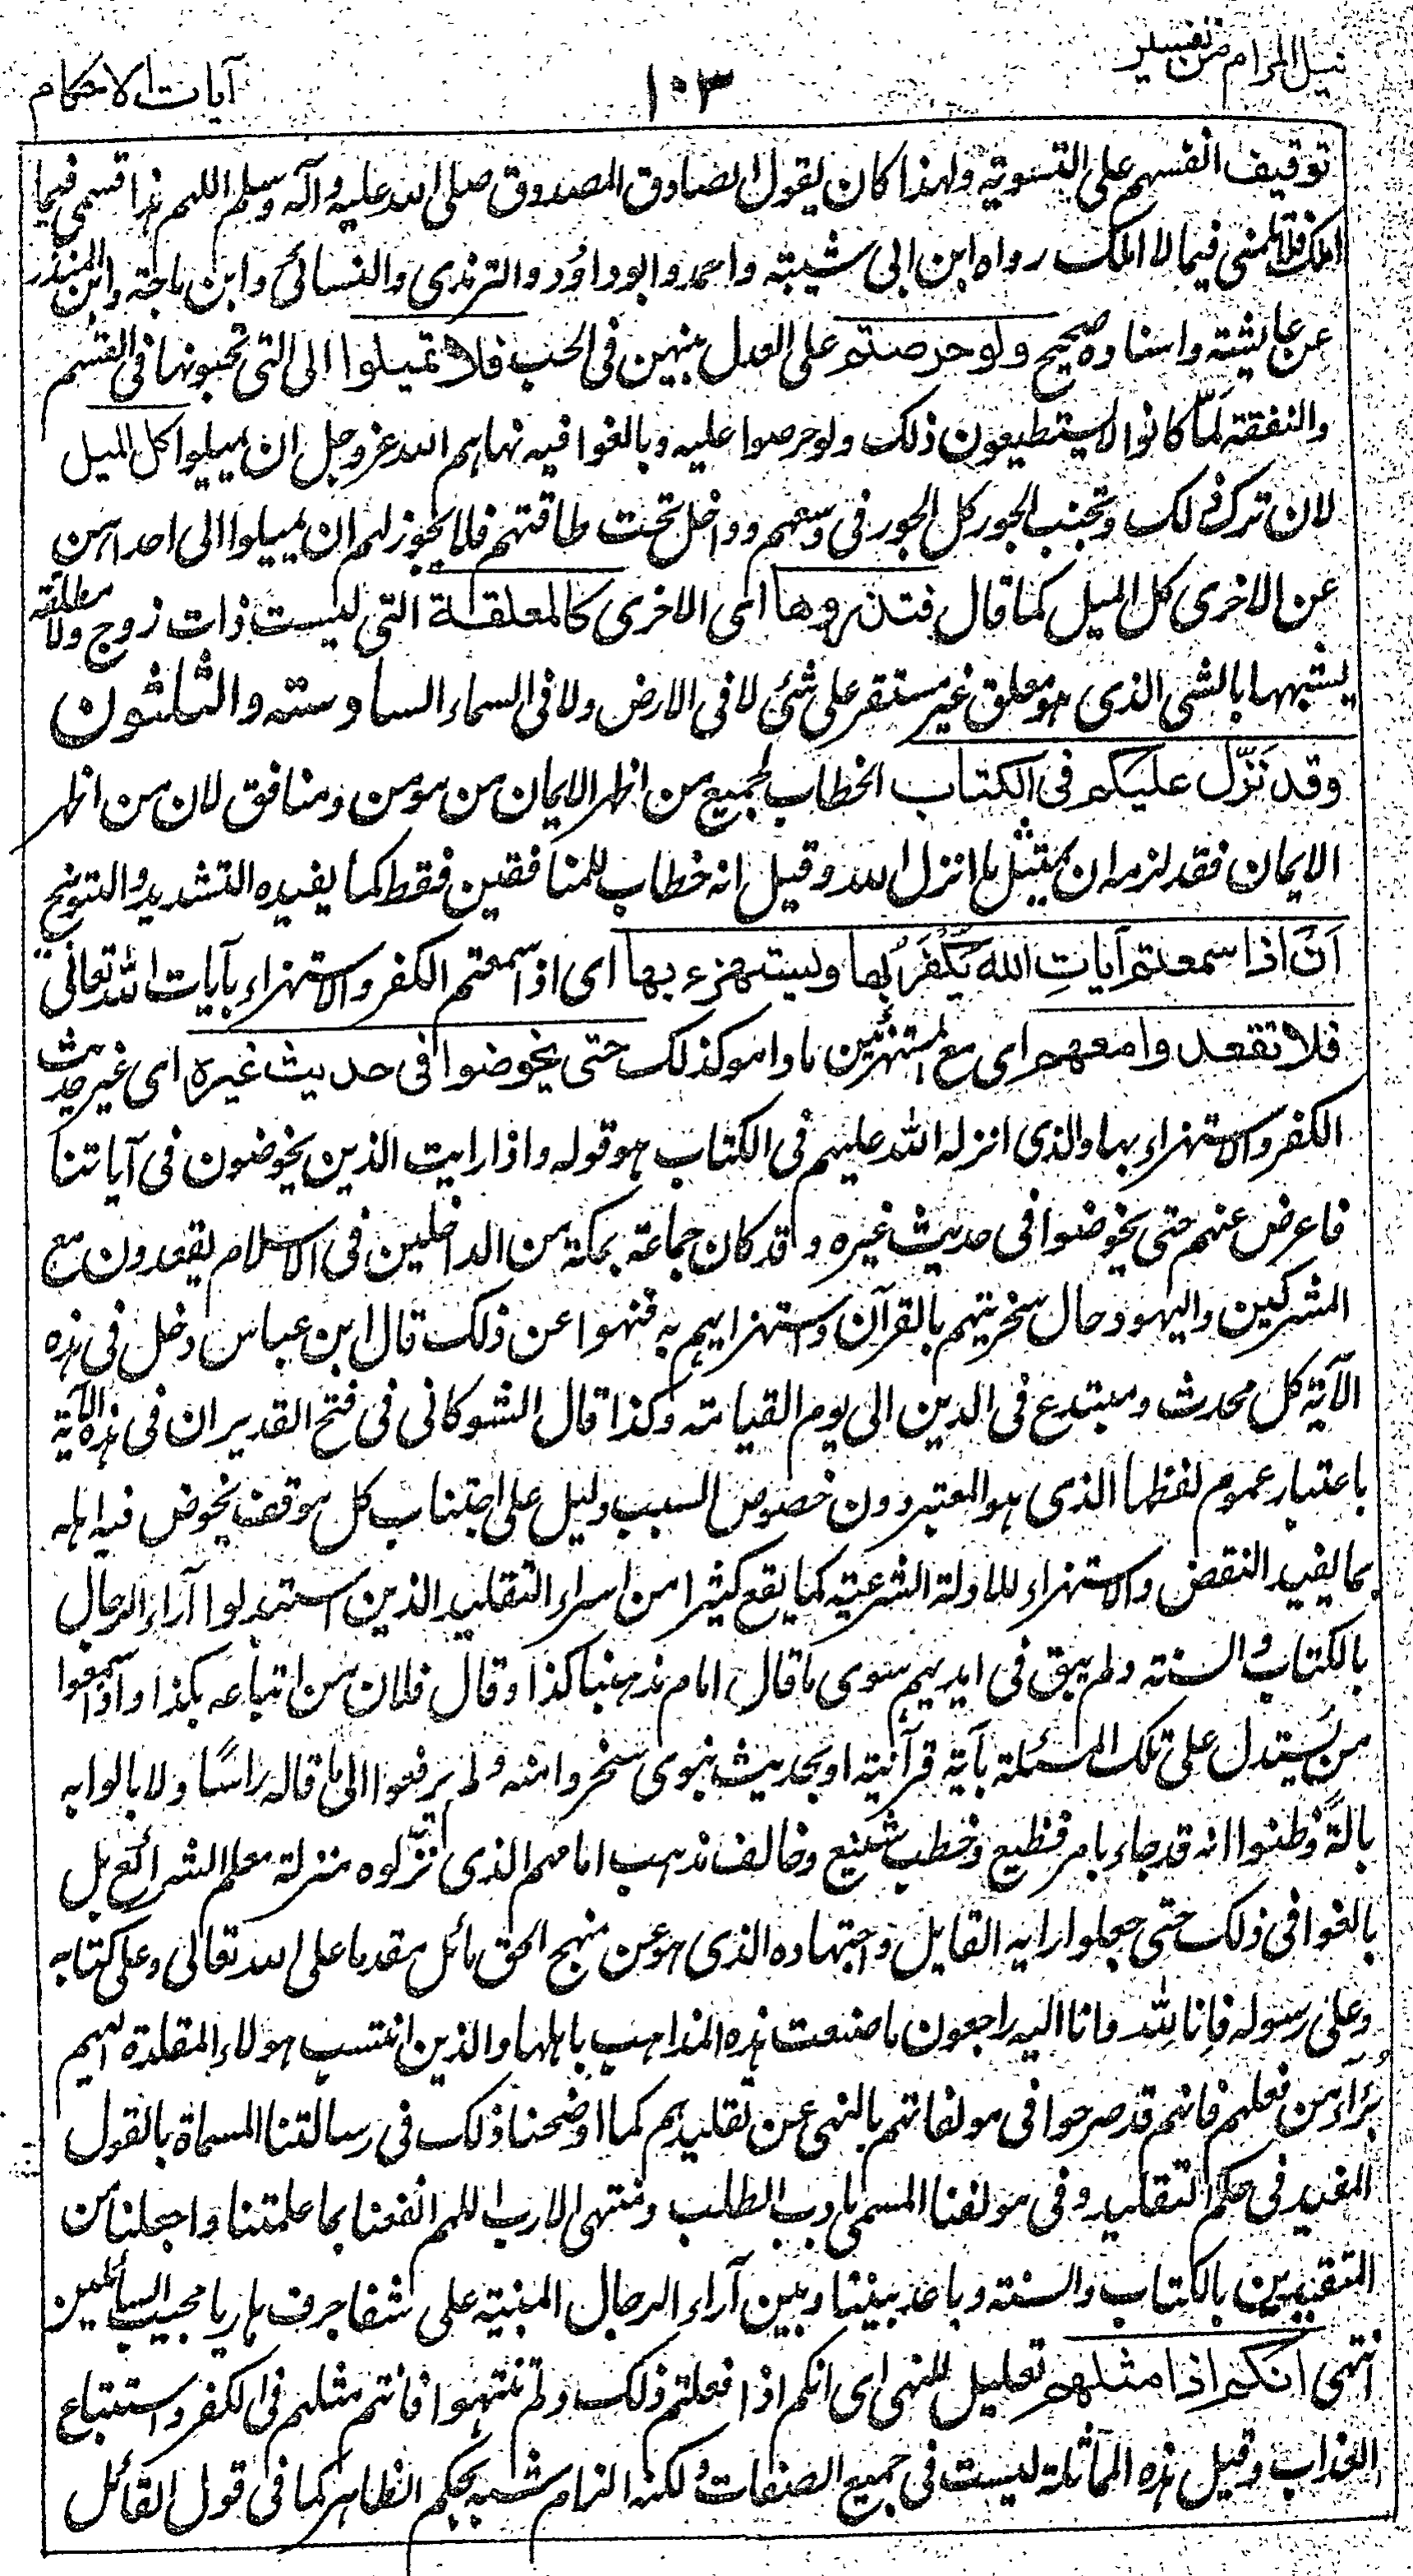 نيل المرام من تفسير
١٠٣
آيات الاحكام
توقيف انفسهم على التسوية ولهذا كان يقول الصادق المصدوق صلى الله عليه وآله وسلم اللهم هذا قسمى فيما
املك فلا تلمنى فيما لا املك رواه ابن ابى شيبة واحمد وابو داؤد والترمذى والنسائى وابن ماجة وابن المنذر
عن عايشة واسناده صحيح ولو حرصتم على العدل بينهن فى الحب فلا تميلوا الى التى تحبونها فى القسم
والنفقة لمّا كانوا لا يستطيعون ذلك ولو حرصوا عليه وبالغوا فيه نهاهم الله عزوجل ان يميلوا كل الميل
لان ترك ذلك وتجنب الجور كل الجور فى وسعهم وداخل تحت طاقتهم فلا يجوز لهم ان يميلوا الى احداهن
عن الاخرى كل الميل كما قال فتذروها اى الاخرى كالمعلقة التى ليست ذات زوج ولا مطلقة
يشبهها بالشى الذى هو معلق غير مستقر على شئ لا فى الارض ولا فى السماء السادسة والثلثون
وقد نَزَّل عليكم فى الكتاب الخطاب لجميع من اظهر الايمان من مؤمن ومنافق لان من اظهر
الايمان فقد لزمه ان يمتثل ما انزل الله وقيل انه خطاب للمنافقين فقط كما يفيده التشديد والتوبيخ
اَنْ اذا سمعتم آياتِ الله يُكْفَرُ بها ويستهزء بها اى اذا سمعتم الكفر والاستهزاء بآيات الله تعالى
فلا تقعدوا معهم اى مع المستهزئين ما داموا كذلك حتى يخوضوا فى حديث غيره اى غير حديث
الكفر والاستهزاء بها والذى انزله الله عليهم فى الكتاب هو قوله واذا رايت الذين يخوضون فى آياتنا
فاعرض عنهم حتى يخوضوا فى حديث غيره وقد كان جماعة بمكة من الداخلين فى الاسلام يقعدون مع
المشركين واليهود حال سخريتهم بالقرآن واستهزايهم به فنهوا عن ذلك قال ابن عباس دخل فى هذه
الآية كل محدث ومبتدع فى الدين الى يوم القيامة وكذا قال الشوكانى فى فتح القدير ان فى هذه الآية
باعتبار عموم لفظها الذى هو المعتبر دون خصوص السبب دليل على اجتناب كل موقف يخوض فيه اهله
بما يفيد النقض والاستهزاء للادلة الشرعية كما يقع كثيرا من اسراء التقليد الذين استبدلوا آراء الرجال
بالكتاب والسنة ولم يبق فى ايديهم سوى ما قال امام مذهبنا كذا وقال فلان من اتباعه بكذا واذا سمعوا
من يَستدل على تلك المسئلة بآية قرآنية او بحديث نبوى سخروا منه ولم يرفعوا الى ما قاله راسًا ولا بالوا به
بالةً وظنوا انه قد جاء بامر فظيع وخطب شنيع وخالف مذهب امامهم الذى نزّلوه منزلة معلم الشرائع بل
بالغوا فى ذلك حتى جعلوا رايه القايل واجتهاده الذى هو عن منهج الحق مائل مقدما على الله تعالى وعلى كتابه
وعلى رسوله فانا لله وانا اليه راجعون ما صنعت هذه المذاهب باهلها والذين انتسب هولاء المقلدة اليهم
بُرَآء من فعلهم فانهم قد صرحوا فى مولفاتهم بالنهى عن تقليدهم كما اوضحنا ذلك فى رسالتنا المسماة بالقول
المفيد فى حكم التقليد وفى مولفنا المسمى بادب الطلب ومنتهى الارب اللهم انفعنا بما علمتنا واجعلنا من
المتقيدين بالكتاب والسنة وباعد بيننا وبين آراء الرجال المبنية على شفا جرف هار يا مجيب السائلين
انتهى انكم اذا مثلهم تعليل للنهى اى انكم اذا فعلتم ذلك ولم تنتهوا فانتم مثلهم فى الكفر واستتباع
العذاب وقيل هذه المماثلة ليست فى جميع الصفات ولكنه الزام شبه بحكم الظاهر كما فى قول القائل